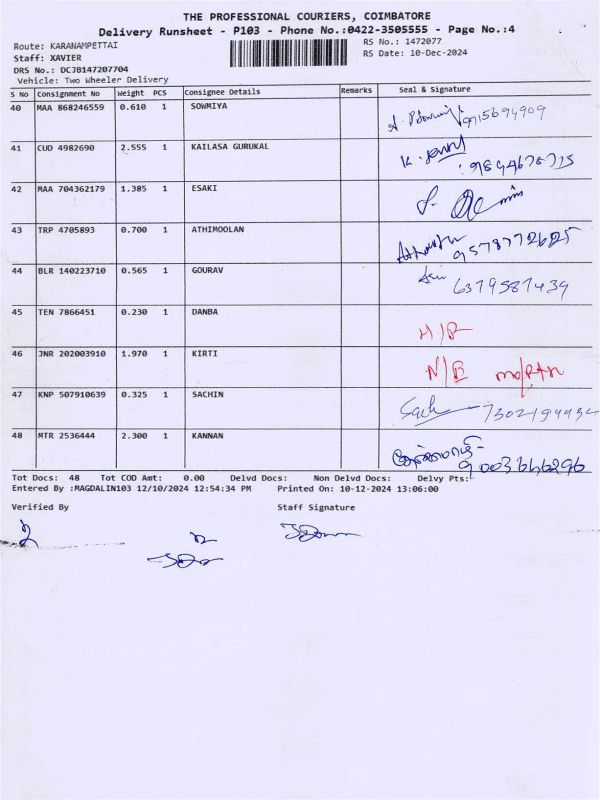 THE PROFESSIONAL COURIERS, COIMBATORE
Delivery Runsheet - P103 - Phone No.:0422-3505555 - Page No.:4
Route: KARANAMPETTAI
RS No.: 1472077
Staff: XAVIER
RS Date: 10-Dec-2024
DRS No.: DCJB147207704
Vehicle: Two Wheeler Delivery
S No Consignment No Weight PCS Consignee Details Remarks Seal & Signature
40 MAA 868246559 0.610 1 SOWMIYA 9715694909
41 CUD 4982690 2.555 1 KAILASA GURUKAL
42 MAA 704362179 1.385 1 ESAKI
43 TRP 4705893 0.700 1 ATHIMOOLAN 9578772625
44 BLR 140223710 0.565 1 GOURAV 6379587439
45 TEN 7866451 0.230 1 DANBA
46 JNR 202003910 1.970 1 KIRTI
47 KNP 507910639 0.325 1 SACHIN Sach 7302194434
48 MTR 2536444 2.300 1 KANNAN 9003646296
Tot Docs: 48 Tot COD Amt: 0.00 Delvd Docs: Non Delvd Docs: Delvy Pts:
Entered By :MAGDALIN103 12/10/2024 12:54:34 PM Printed On: 10-12-2024 13:06:00
Verified By Staff Signature